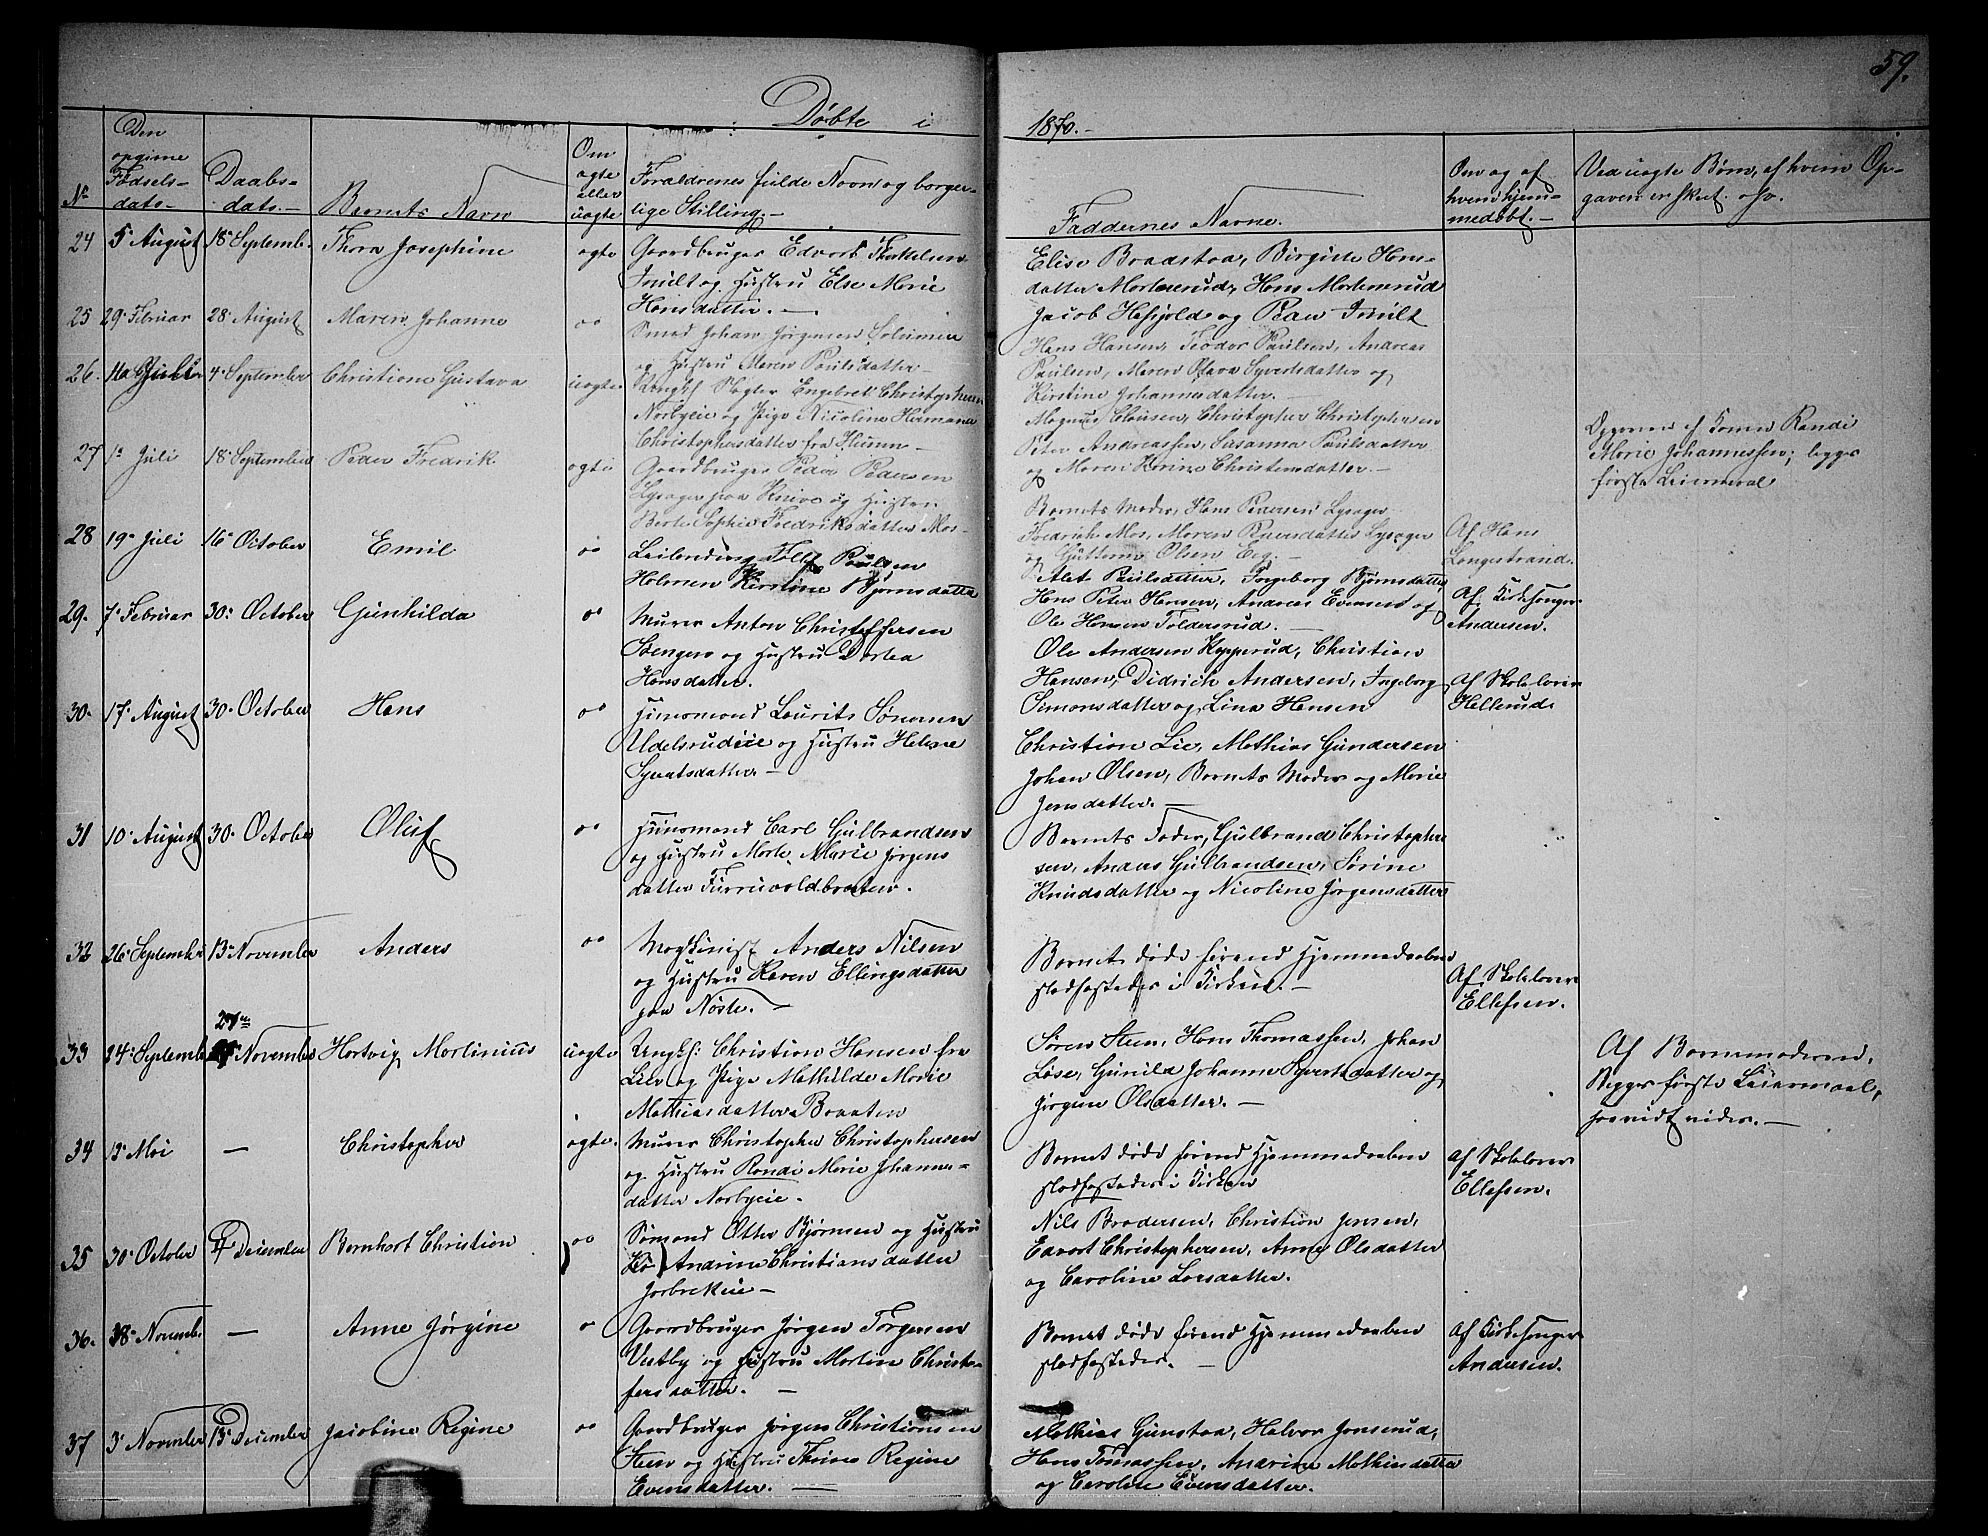 59.
Døbte i 1870.
Nr
Den opgivne Fødsels-dato
Daabs-dato.
Barnets Navn
Om ægte eller uægte
Forældrenes fulde Navn og borger-
lige Stilling.
Faddernes Navne.
Om og af hvem hjem-medøbt.
Ved uægte Børn, af hvem Op-
gaven er skeet osv.
24 5 August 18 Septemb. Thora Josephine ægte Gaardbruger Edvart Thorkelsen
og Hustru Else Marie
Hansdatter.
Elise Braastaa, Birgitte Hans-
datter Mortensrud, Hans Mortensrud
Jacob Høfjeld og
25 29 Februar 28 August Maren Johanne " Smed Johan Jørgensen
og Hustru Maren Paulsdatter
Hans Hansen, Teodor Paulsen, Andreas
Paulsen, Maren Olava Syvertsdatter og
Kirstine Johannesdatter.
26. 4 September Christiane Gustava uægte Ungkf. Engebret Christophersen
Norbyeie og Pige Nicoline Hermana
Christophersdatter fra Hurum
Magnus Clausen, Christopher Christophersen
Peter Andreassen, Susanna Paulsdatter
og Maren Karine Christensdatter.
Opgaven af Konen Randi
Marie Johannessen; begges
første Leiermaal
27 1 Juli 18 September Peder Fredrik ægte Gaardbruger Peder Pedersen
Lysager paa Knive og Hustru
Berte Sophie Fredriksdatter Mos
Barnets Moder, Hans Pedersen Lysager
Fredrich Mos, Maren Pedersdatter Lysager
og Guttorm Olsen Eeg.
Af Hans
Langestrand.
28 19 Juli 16 October Emil " Leilending Paulsen
Holmen Kirstine Bjørnsdatter
Alet Paulsdatter, Ingeborg Bjørnsdatter
Hans Peter Hansen, Andreas Evensen og
Ole Hansen Toldersrud.
Af Kirkesanger
Andersen.
29. 7 Februar 30 October Gunhilda " Murer Anton Christoffersen
Stengen og Hustru Dortea
Hansdatter.
Ole Andersen Kopperud, Christian
Hansen, Didrich Andersen, Ingeborg
Simonsdatter og Lina Hansen
Af Skolelærer
Hellerud.
30. 17 August 30 October Hans " Huusmand Laurits Sørensen
Udelsrudeie og Hustru Helene
Syvertsdatter
Christian Lie, Mathias Gundersen
Johan Olsen, Barnets Moder og Marie
Jensdatter.
31 10 August 30 October Oluf " Huusmand Carl Gulbrandsen
og Hustru Marte Marie Jørgens
datter Furruvoldbraaten.
Barnets Fader, Gulbrand Christopher
sen, Anders Gulbrandsen, Sørine
Knudsdatter og Nicoline Jørgensdatter
32 26 September 13 November Anders " Maskinist Anders Nilsen
og Hustru Karen Ellingsdatter
paa Nøste.
Barnet døde førend Hjemmedaaben
stadfæstedes i Kirken.
Af Skolelærer
Ellefsen.
33 24 Septembe 27 November Hartvig Martinius uægte Ungkf: Christian Hansen fra
Lier og Pige Mathilde Marie
Mathiasdatter Braaten
Søren Steen, Hans Thomassen, Johan
Løse, Gunild Johanne Syvertsdatter og
Jørgine Olsdatter.
Af Barnemoderen.
Begges første Leiermaal,
saavidt vides.
34 13 Mai — Christopher ægte. Murer Christopher Christophersen
og Hustru Randi Marie Johannes-
datter Norbyeie.
Barnet døde førend Hjemmedaaben
stadfæstedes i Kirken
Af Skolelærer
Ellefsen.
35 30 October 4 December Bernhart Christian " Sømand Otter Bjørnsen og Hustru
Andrine Christiansdatter
Nils Brodersen, Christian Jensen,
Edvart Christophersen, Anne Olsdatter
og Caroline Larsdatter.
36. 18 Novemb. — Anne Jørgine " Gaardbruger Jørgen Torgersen
Vestby og Hustru Martin Christo-
fersdatter.
Barnet døde førend Hjemmedaaben
stadfæstedes.
Af Kirkesanger
Andersen.
37 3 November 13 December Jacobine Regine " Gaardbruger Jørgen Christiansen
Steen og Hustru Thrine Regine
Evensdatter.
Mathias Gunstaa, Halvor Jonsrud,
Hans Tomassen, Andrine Mathiasdatter
og Caroline Evensdatter.